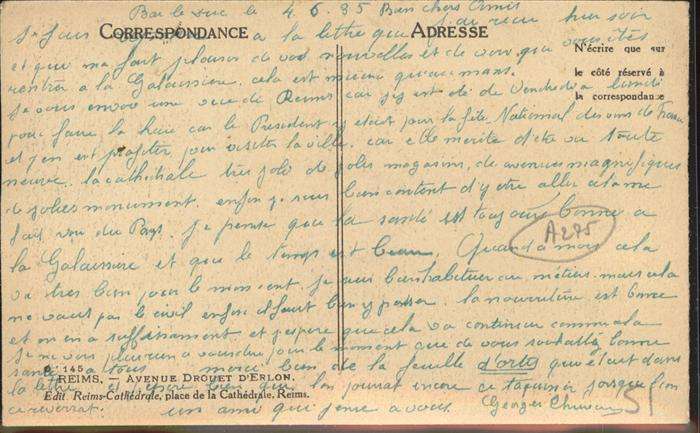 Bar le Duc le 4.6.35 Bien chers Amis
Je fais a la lettre que j'ai reçu hier soir
CORRESPONDANCE
ADRESSE
N'écrire que sur
le côté réservé à
la correspondance
et qui ma fait plaisir de vos nouvelles et de voir que vous êtes
rentrer a la Galaissière. cela est mieux qu'au mans.
Je vous envoie une vue de Reims car j'y est été de Vendredi a lundi
pour faire la haie car le President y etait pour la fête National des vins de France
et j'en est profiter pour visiter la ville. car elle merite d'etre vu toute
neuve. la cathédrale très joli de jolies magasins, de avenues magnifiques
de jolies monument. enfin je suis bien content d'y etre aller cela me
fait voir du Pays. Je pense que la santé est toujours bonne a
la Galaissière et que le temps est beau. Quand a moi cela
A275
va très bien pour le moment. je suis bien habituer au métier. mais cela
ne vaut pas le civil enfin il faut bien y passer. la nourriture est bonne
et on en a suffisament et j'espere que cela va continuer comme cela
Je ne vous plus rien a vous dire pour le moment que de vous souhaiter bonne
santé a tous merci bien de la feuille d'orte que était dans
la lettre et j'espère bien que l'on pourrat encore ce taquiner lorsque l'on
ce reverrat. un ami qui pense a vous Georges
51
145
REIMS. — AVENUE DROUET D'ERLON.
Edit. Reims-Cathédrale, place de la Cathédrale, Reims.